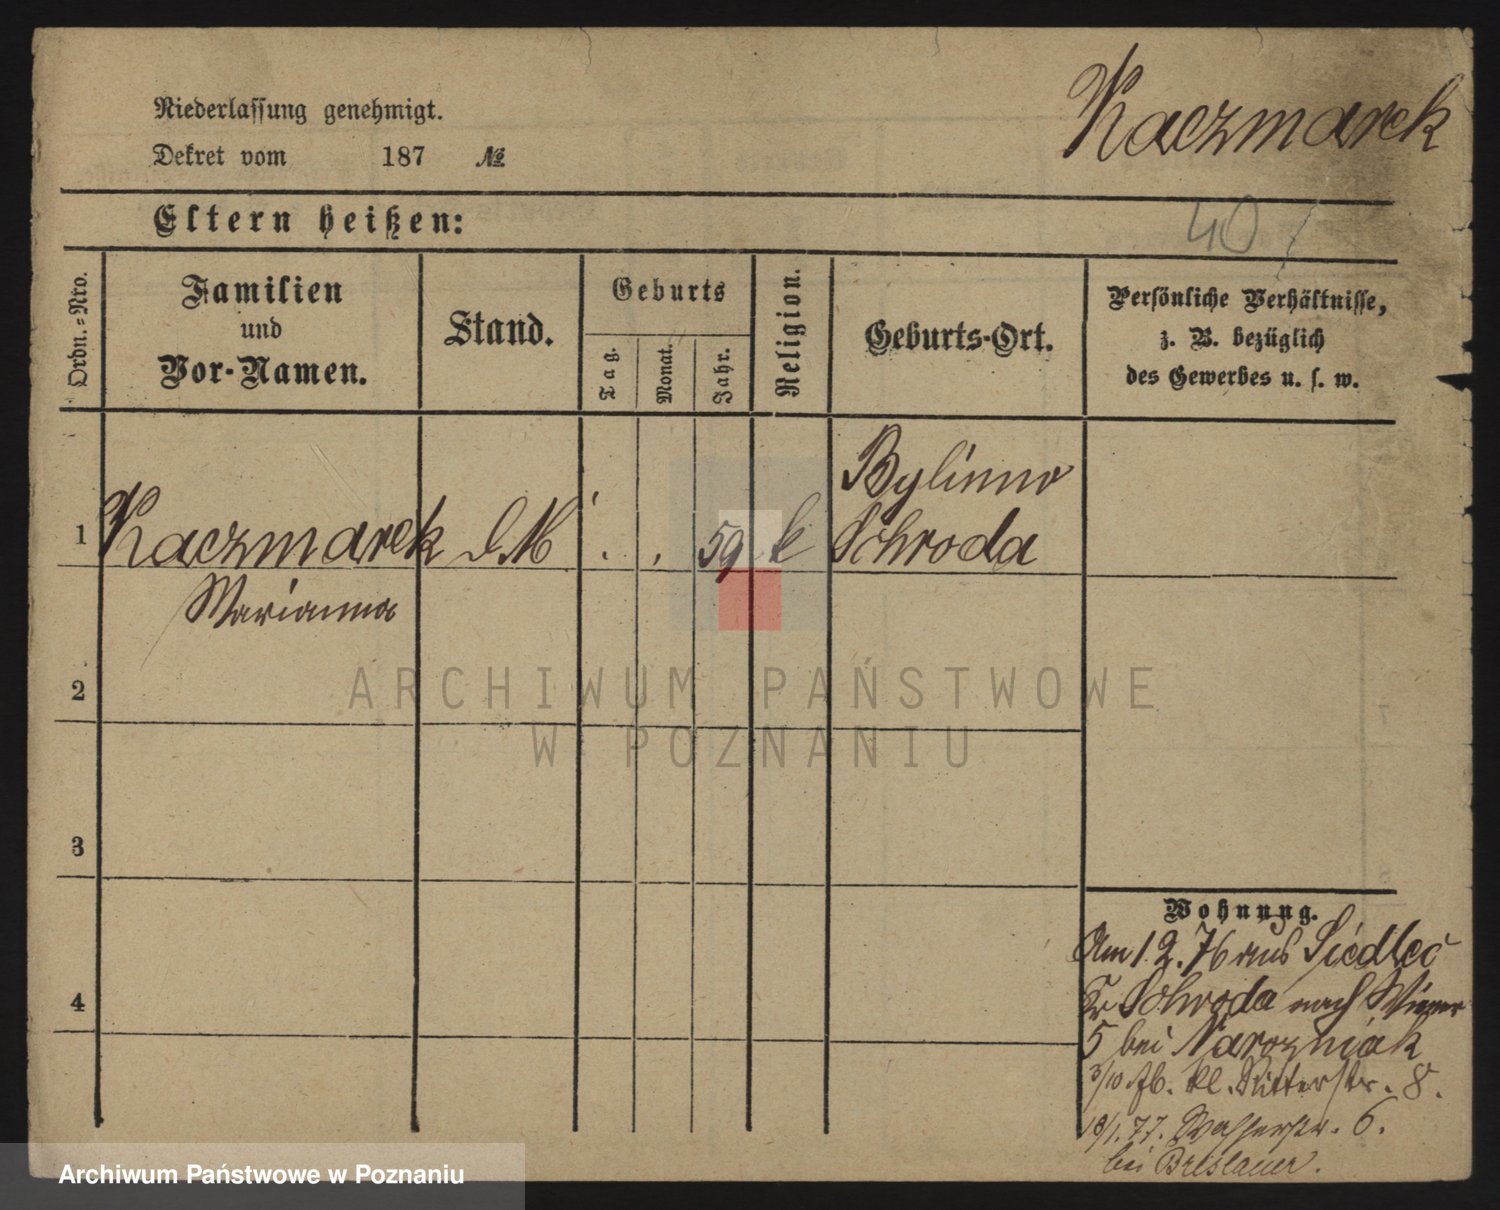 Kaczmarek
Niederlassung genehmigt.
Dekret vom 187 №
40
Eltern heißen:
Ordn.-Nro.
Familien
und
Vor-Namen.
Stand.
Geburts
Tag.
Monat.
Jahr.
Religion.
Geburts-Ort.
Persönliche Verhältnisse,
z. B. bezüglich
des Gewerbes u. s. w.
Bylinno
1 Kaczmarek d.M . . 59 k Schroda
Marianna
2
3
4
Wohnung.
Am 1.2.76 aus Siedlec
Kr Schroda nach Wiener
5 bei Narozniak
3/10 Ab. kl. Ritterstr. 8.
18/1.77. Wasserstr. 6.
bei Breslauer.
ARCHIWUM PAŃSTWOWE
W POZNANIU
Archiwum Państwowe w Poznaniu